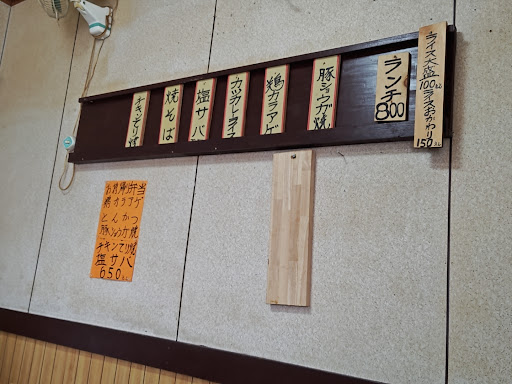 ライス大盛100円
ライスおかわり150円
ランチ
800
豚ショウガ焼
鶏カラアゲ
カツカレーライス
塩サバ
焼そば
チキンテリ焼
お持帰弁当
鶏カラアゲ
とんかつ
豚しょうが焼
チキンてり焼
塩サバ
650円